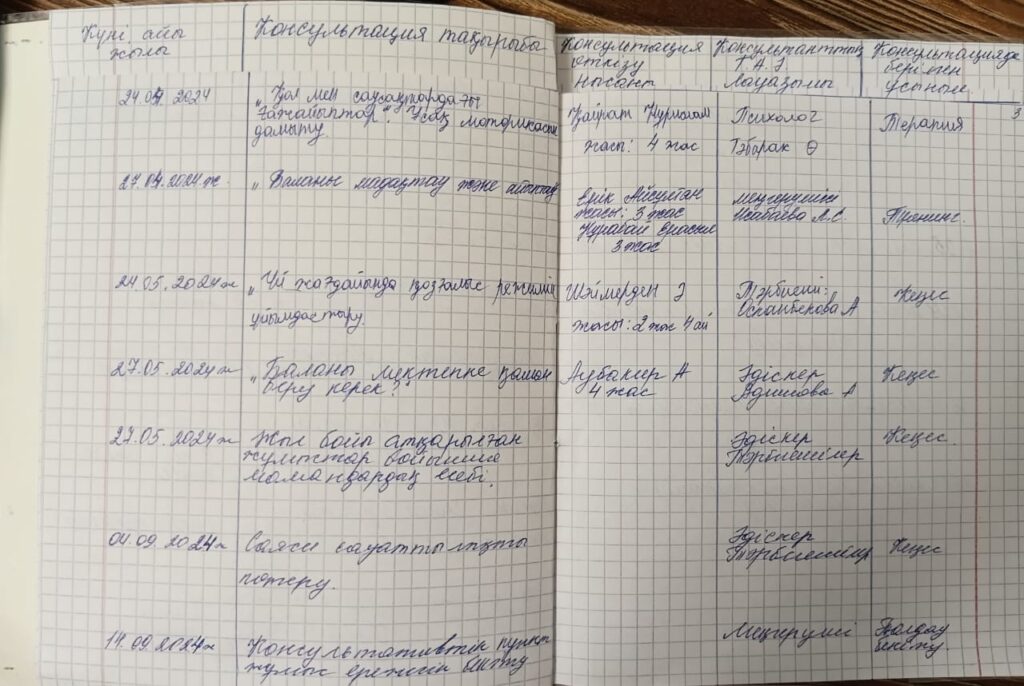 Күні, айы
жылы
Консультация тақырыбы
Консультация
өткізу
нысаны
Консультанттың
Т.А.Ә
Лауазымы
Консультацияда
берілген
ұсыныс
24.04 2024
„Қол мен саусақтардағы
ғажайыптар". Ұсақ моторикасын
дамыту.
Қайрат Нурислам
жасы: 4 жас
Психолог
Тәбарак Ә
Терапия
3
27.04.2024ж.
„Баланы мадақтау және айыптау
Ерік Айсултан
жасы: 3 жас
Құрабай Ерасыл
3 жас
меңгеруші
Исабаева Л.С.
Тренинг.
24.05.2024ж
„Үй жағдайында қозғалыс режимін
ұйымдастыру.
Шәймерден Э
жасы: 2 жас 4 ай
Тәрбиеші:
Оспанбекова А
Кеңес
27.05.2024ж
„Баланы мектепке қашан
беру керек?"
Аубакир А
4 жас
Әдіскер
Адилова А
Кеңес
27.05.2024ж
Жыл бойы атқарылған
жұмыстар бойынша
мамандардың есебі.
Әдіскер
Тәрбиешілер
Кеңес.
04.09.2024ж
Саяси сауаттылықты
көтеру.
Әдіскер
Тәрбиешілер
Кеңес
14.09.2024ж
Консультативтік пункт
жұмыс ережесін бекіту
Меңгеруші
Қолдау
бекіту.